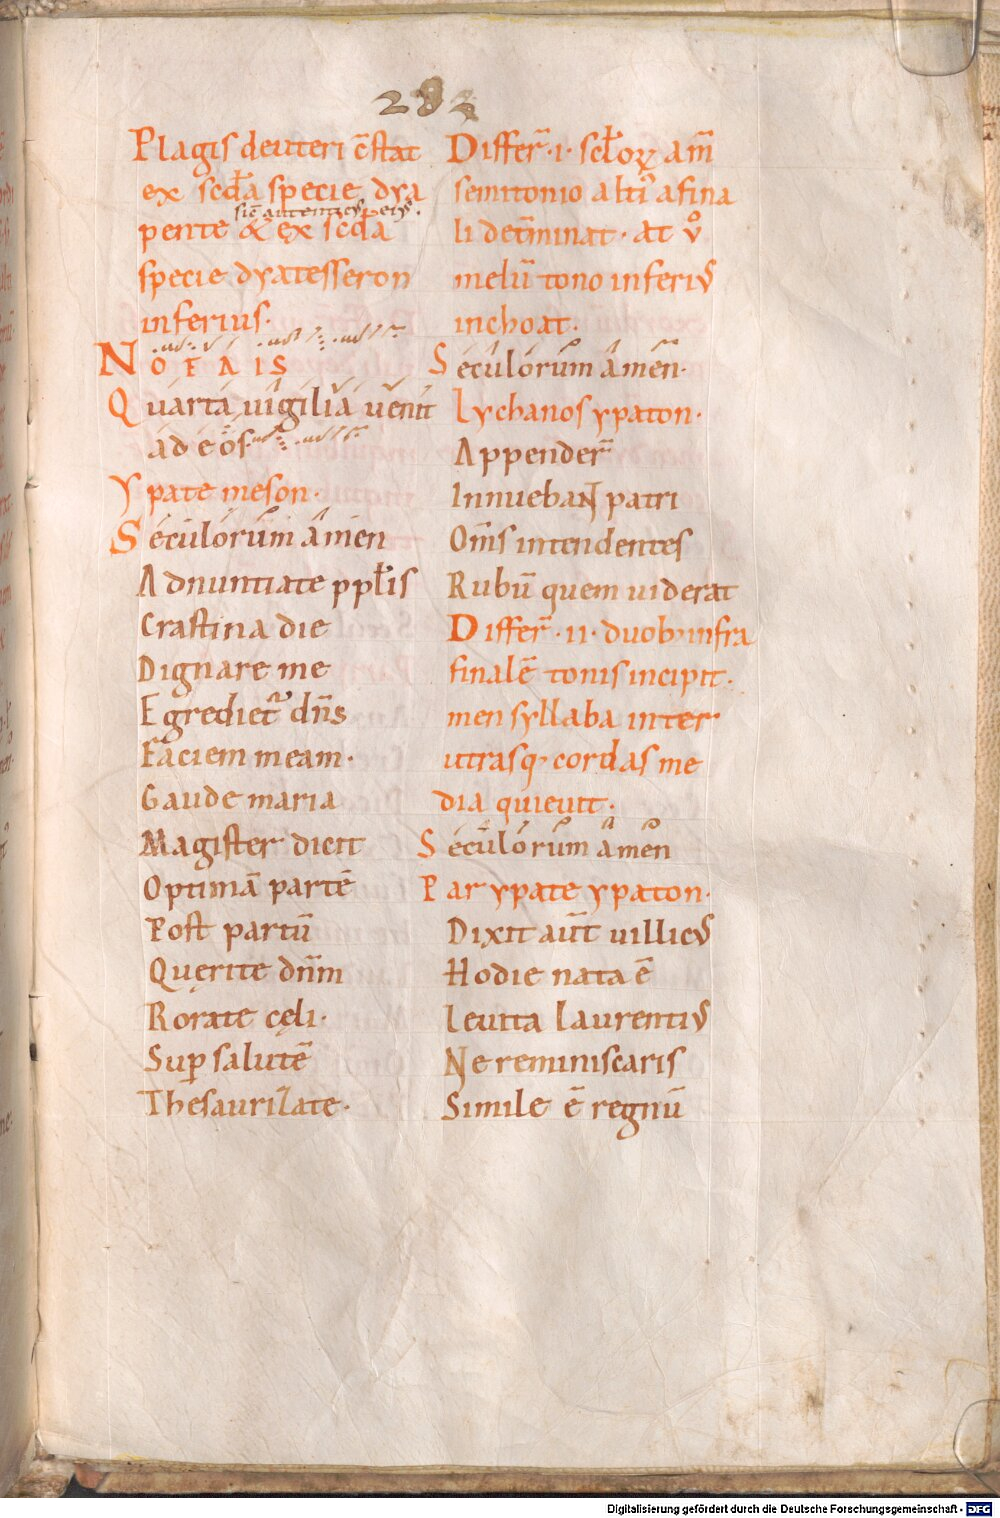 282
Plagis deuteri c̄stat
ex scd̄a specie dya
sic̄ autentic᷒ ei᷒.
pente & ex scd̄a
specie dyatesseron
inferius.
NOEAIS
Quarta uigilia uenit
ad eos
Ypate meson.
Seculorum amen
Adnuntiate ppl̄is
Crastina die
Dignare me
Egrediet᷑ dn̄s
Faciem meam.
Gaude maria
Magister dicit
Optimā partē
Post partū
Quęrite dn̄m
Rorate cęli.
Suꝑ salutē
Thesaurizate.
Differ̄.i. scl̄oꝝ am̄
semitonio altī afina
li det̄minat. at v̊
melū tono inferi᷒
inchoat.
Seculorum amen.
Lychanos ypaton.
Appender̄
Innuebant patri
Om̄s intendentes
Rubū quem uiderat
Differ̄.ii. duob; infra
finalē tonis incipit.
men syllaba inter
utrasq; cordas me
dia quieuit.
Seculorum amen
Par ypate ypaton.
Dixit aūt uillic᷒
Hodie nata ē
Leuita Laurenti᷒
Ne reminiscaris
Simile ē regnū
Digitalisierung gefördert durch die Deutsche Forschungsgemeinschaft - DFG